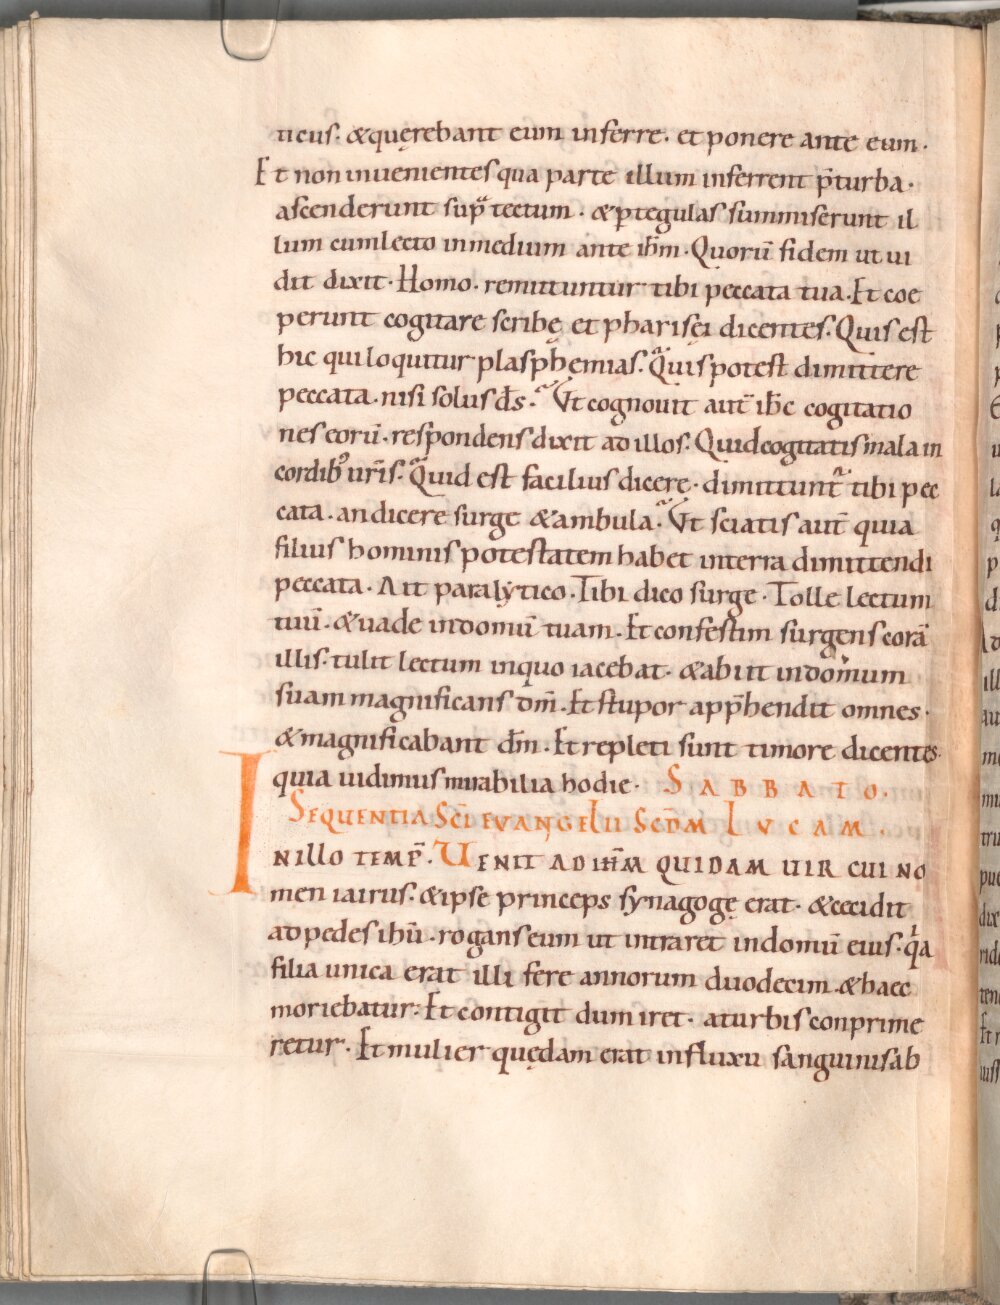 ticus· &quęrebant eum inferre· et ponere ante eum·
Et non inuenientes qua parte illum inferrent p̄turba·
ascenderunt sup̄ tectum· &p̱tegulas summiserunt il
lum cumlecto inmedium ante ih̄m· Quorū fidem ut ui
dit dixit· Homo· remittuntur tibi peccata tua· Et coe
perunt cogitare scribę et pharisęi dicentes· Quis est
hic qui loquitur plasphemias· Quis potest dimittere
peccata· nisi solus d̄s· Vt cognouit aut̄ ih̄c cogitatio
nes eorū· respondens dixit ad illos· Quid cogitatis mala in
cordib; ur̄is· Quid est facilius dicere· dimittunt̄ tibi pec
cata· an dicere surge &ambula· Vt sciatis aut̄ quia
filius hominis potestatem habet interra dimittendi
peccata· Ait paralẏtico· Tibi dico surge· Tolle lectum
tuū· &uade indomū tuam· Et confestim surgens corā
illis· tulit lectum inquo iacebat· &abiit indomum
suam magnificans dm̄· Et stupor app̄hendit omnes·
&magnificabant dm̄· Et repleti sunt timore dicentes·
quia uidimus mirabilia hodie· SABBATO·
SEQUENTIA SC̄I EVANGELII SCD̄M LVCAM·
INILLO TEMP̄· VENIT AD IH̄M QUIDAM UIR CUI NO
men iairus· &ipse princeps synagogę erat· &cecidit
ad pedes ihū· rogans eum ut intraret indomū eius· qa
filia unica erat illi fere annorum duodecim· &haec
moriebatur· Et contigit dum iret· aturbis conprime
retur· Et mulier quędam erat influxu sanguinis ab